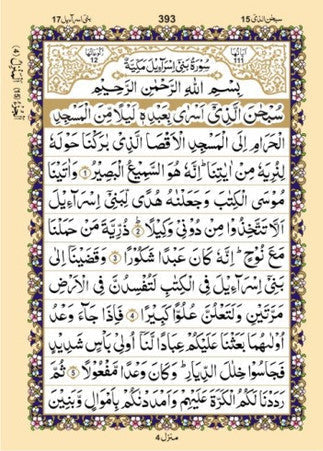 سبحٰن الذیٓ ١٥
393
بنیٓ اسرآءیل ١٧
اٰیاتها 111
سُوْرَةُ بَنِیْٓ اِسْرَآءِیْلَ مَکِّیَّةٌ
رکوعاتها 12
بِسْمِ اللّٰهِ الرَّحْمٰنِ الرَّحِیْمِ
سُبْحٰنَ الَّذِیْٓ اَسْرٰی بِعَبْدِهٖ لَیْلًا مِّنَ الْمَسْجِدِ
الْحَرَامِ اِلَی الْمَسْجِدِ الْاَقْصَا الَّذِیْ بٰرَکْنَا حَوْلَهٗ
لِنُرِیَهٗ مِنْ اٰیٰتِنَا ؕ اِنَّهٗ هُوَ السَّمِیْعُ الْبَصِیْرُ ۝۱ وَاٰتَیْنَا
مُوْسَی الْکِتٰبَ وَجَعَلْنٰهُ هُدًی لِّبَنِیْٓ اِسْرَآءِیْلَ
اَلَّا تَتَّخِذُوْا مِنْ دُوْنِیْ وَکِیْلًا ۝۲ ذُرِّیَّةَ مَنْ حَمَلْنَا
مَعَ نُوْحٍ ؕ اِنَّهٗ کَانَ عَبْدًا شَکُوْرًا ۝۳ وَقَضَیْنَآ اِلٰی
بَنِیْٓ اِسْرَآءِیْلَ فِی الْکِتٰبِ لَتُفْسِدُنَّ فِی الْاَرْضِ
مَرَّتَیْنِ وَلَتَعْلُنَّ عُلُوًّا کَبِیْرًا ۝۴ فَاِذَا جَآءَ وَعْدُ
اُوْلٰىهُمَا بَعَثْنَا عَلَیْکُمْ عِبَادًا لَّنَآ اُولِیْ بَاْسٍ شَدِیْدٍ
فَجَاسُوْا خِلٰلَ الدِّیَارِ ؕ وَکَانَ وَعْدًا مَّفْعُوْلًا ۝۵ ثُمَّ
رَدَدْنَا لَکُمُ الْکَرَّةَ عَلَیْهِمْ وَاَمْدَدْنٰکُمْ بِاَمْوَالٍ وَّبَنِیْنَ
منزل 4